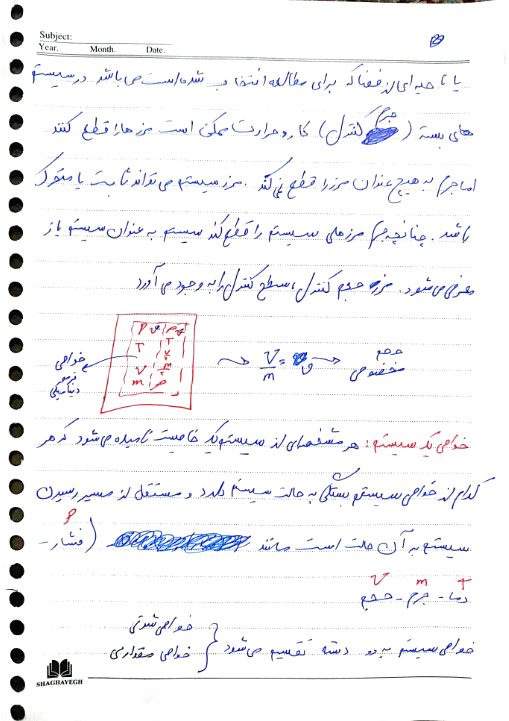 Subject:
Year. Month. Date.
یا ناحیه‌ای از فضا که برای مطالعه انتخاب شده است می باشد در سیستم
های بسته (جرم کنترل) کار و حرارت ممکن است مرزها را قطع کنند
اما جرم به هیچ عنوان مرز را قطع نمی کند. مرز سیستم می تواند ثابت یا متحرک
باشد. چنانچه جرم مرزهای سیستم را قطع کند سیستم به عنوان سیستم باز
معرفی می شود. مرز حجم کنترل، سطح کنترل را به وجود می آورد
خواص ترمودینامیکی
P T V m
V/m = v → حجم مخصوص
خواص یک سیستم: هر مشخصه‌ای از سیستم یک خاصیت نامیده می شود که هر
کدام از خواص سیستم بستگی به حالت سیستم دارد و مستقل از مسیر رسیدن
سیستم به آن حالت است مانند (فشار P -
دما T - جرم m - حجم V
خواص سیستم به دو دسته تقسیم می شود { خواص شدتی
خواص مقداری
SHAGHAYEGH